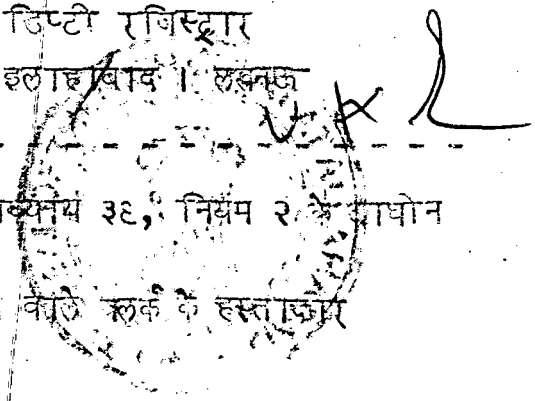 डिप्टी रजिस्ट्रार
इलाहाबाद । लखनऊ
३६, नियम २ के आधीन
वाले क्लर्क के हस्ताक्षर